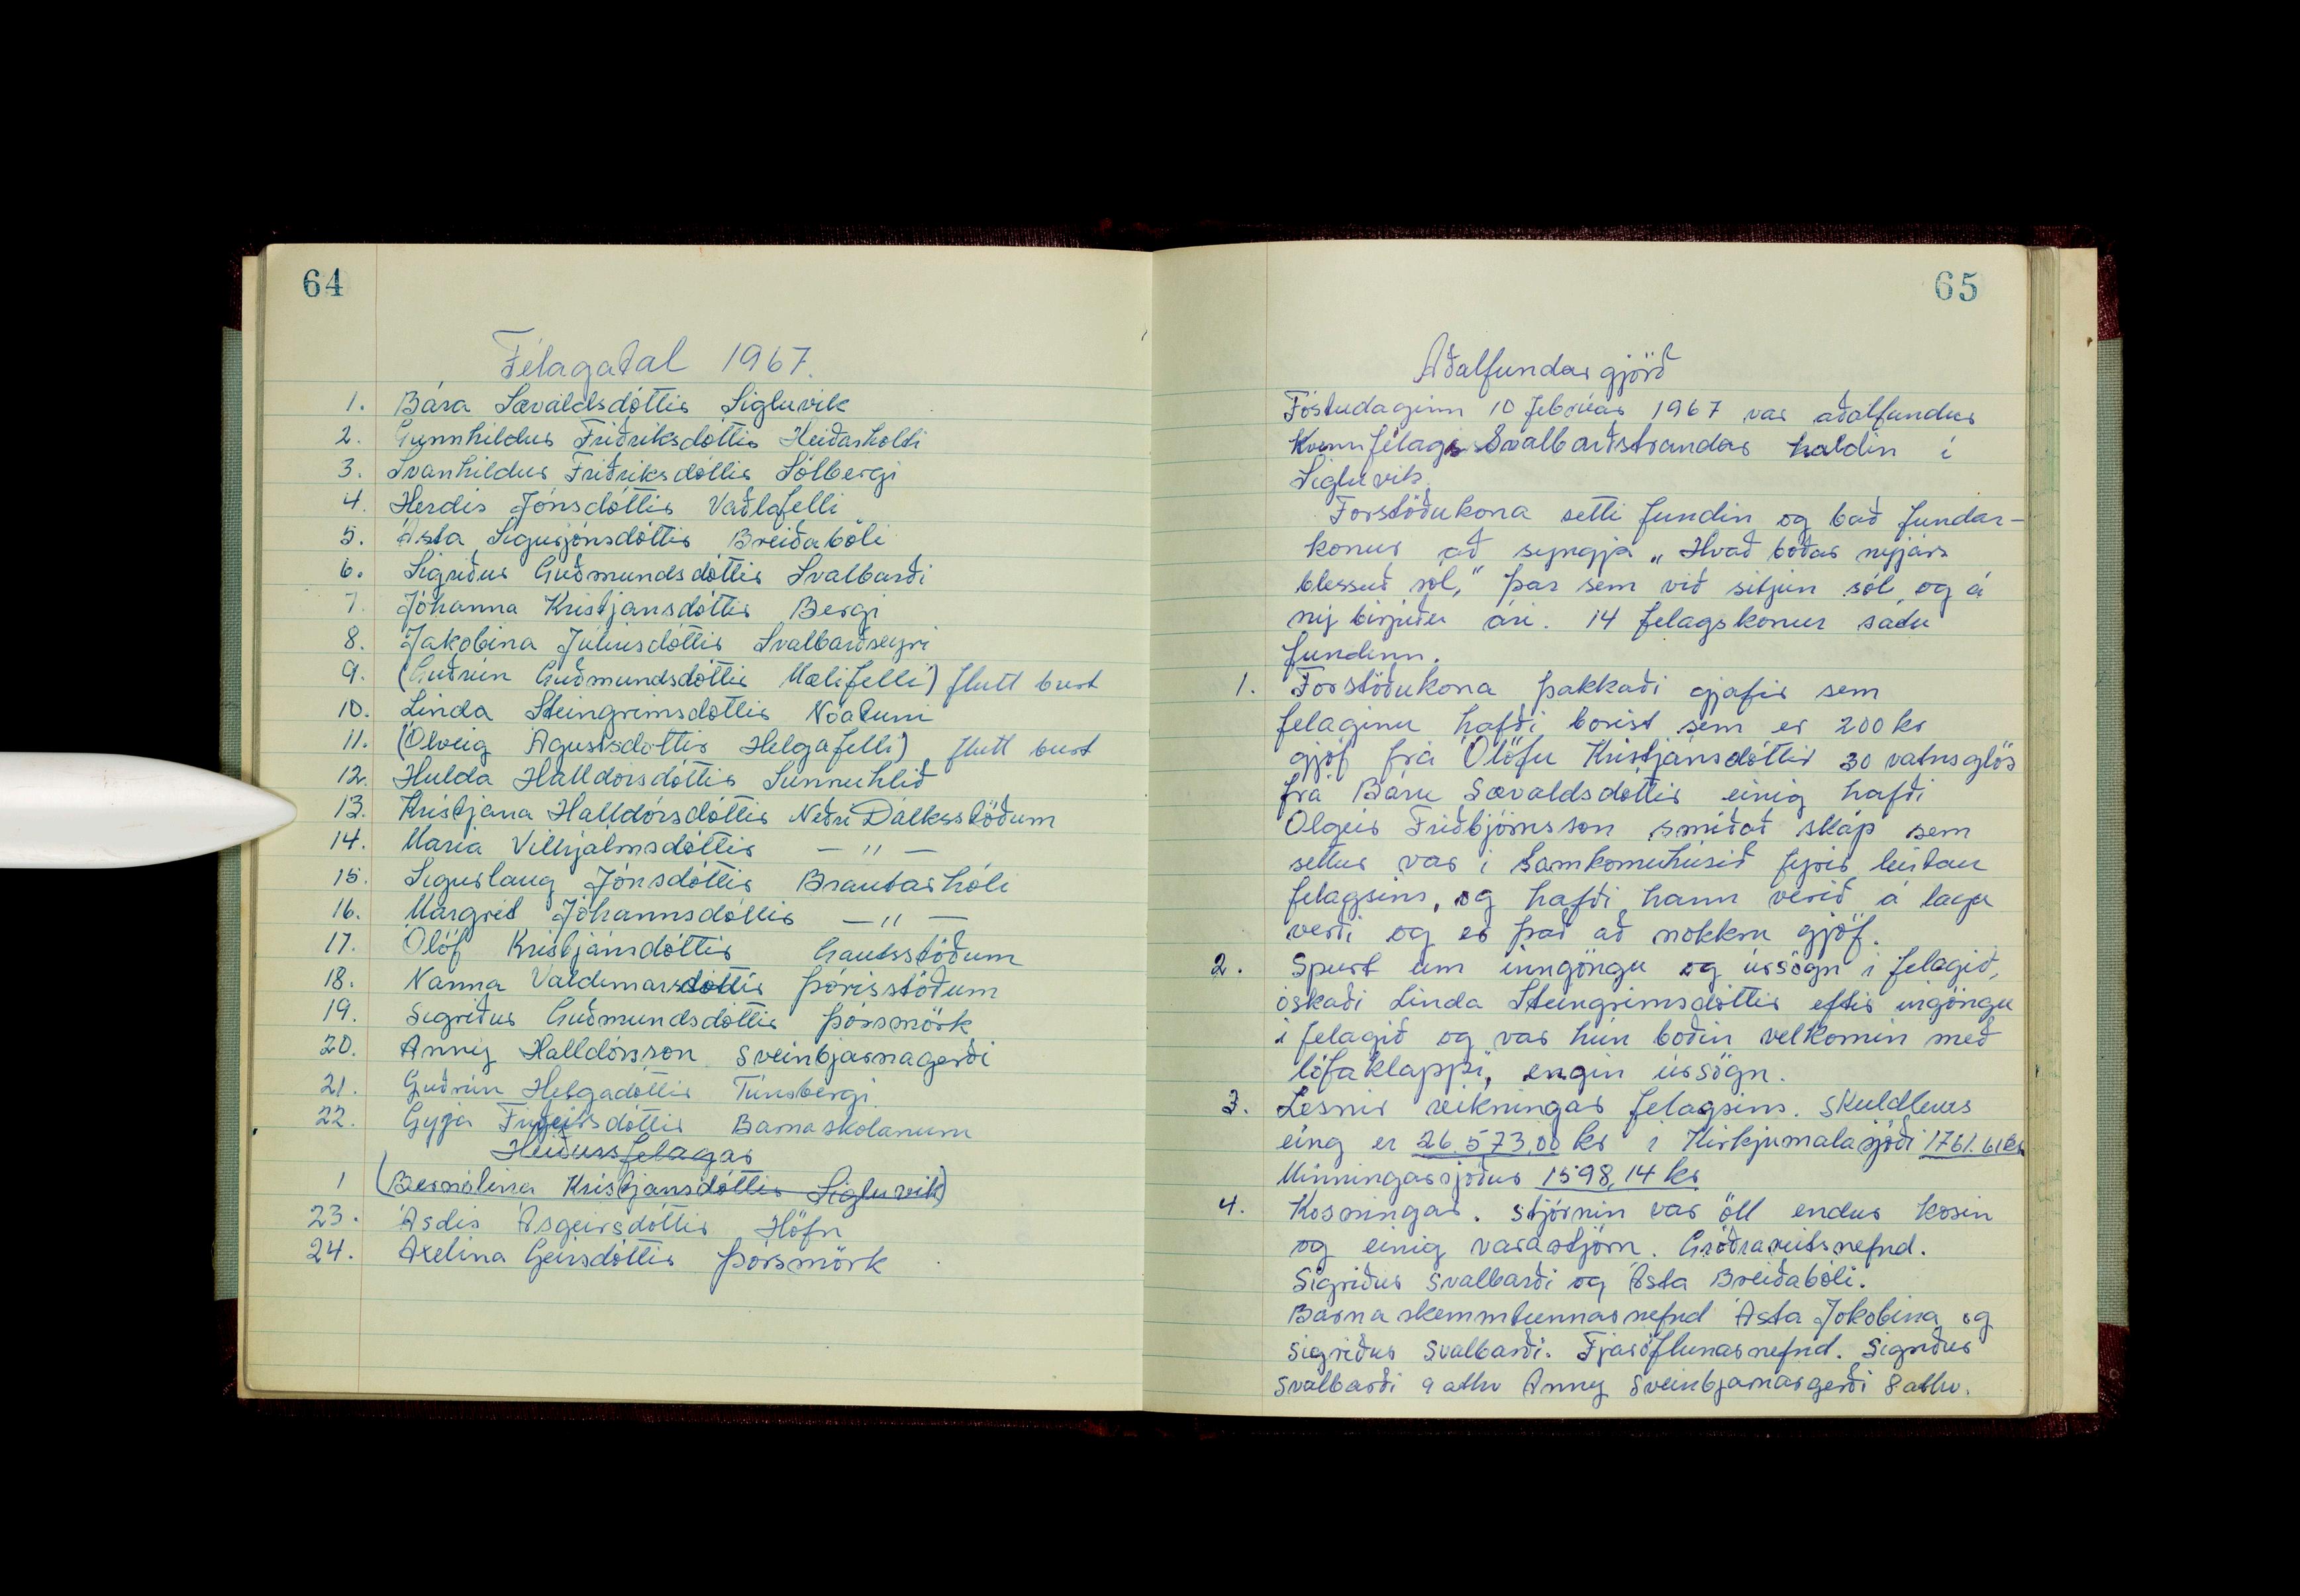 64
Félagatal 1967.
1. Bára Sævaldsdóttir Sigluvík
2. Gunnhildur Friðriksdóttir Heiðarholti
3. Svanhildur Friðriksdóttir Sólbergi
4. Herdís Jónsdóttir Vaðlafelli
5. Ásta Sigurjónsdóttir Breiðabóli
6. Sigríður Guðmundsdóttir Svalbarði
7. Jóhanna Kristjánsdóttir Bergi
8. Jakobína Júlíusdóttir Svalbarðseyri
9. (Guðrún Guðmundsdóttir Mælifelli) flutt burt
10. Linda Steingrímsdóttir Nóatuni
11. (Ólveig Ágústsdóttir Helgafelli) flutt burt
12. Hulda Halldórsdóttir Sunnuhlíð
13. Kristjana Halldórsdóttir Neðri Dálksstöðum
14. María Vilhjálmsdóttir — " —
15. Sigurlaug Jónsdóttir Brautarhóli
16. Margrét Jóhannsdóttir — " —
17. Ólöf Kristjánsdóttir Gautsstöðum
18. Nanna Valdimarsdóttir Þórisstöðum
19. Sigríður Guðmundsdóttir Þórsmörk
20. Anny Halldórsson Sveinbjarnagerði
21. Guðrún Helgadóttir Túnsbergi
22. Gyja Frigeirsdóttir Barnaskolanum
Heiðursfelagar
1 (Bernólína Kristjánsdóttir Sigluvík)
23. Ásdís Ásgeirsdóttir Höfn
24. Axelína Geirsdóttir Þórsmörk
65
Aðalfundargjörð
Föstudaginn 10 febrúar 1967 var aðalfundur
Kvennfélags Svalbarðstrandar haldin í
Sigluvík.
Forstöðukona setti fundin og bað fundar-
konur að syngja „Hvað boðar nyjárs
blessuð sól," þar sem við sitjun sól, og á
nýbirjuðu ári. 14 felagskonur sadu
fundinn.
1. Forstöðukona þakkaði gjafir sem
felaginu hafði borist sem er 200 kr
gjöf frá Ólöfu Kristjánsdóttir 30 vatnsglös
frá Báru Sævaldsdóttir einig hafði
Olgeir Friðbjörnsson smíðað skáp sem
settur var i Samkomuhúsið fyrir leirtau
felagsins, og hafði hann verið á lagu
verði og er það að nokkru gjöf.
2. Spurt um inngöngu og úrsögn i felagið,
óskaði Linda Steingrimsdóttir eftir ingöngu
i felagið og var hún boðin velkomin með
lófaklappi, engin úrsögn.
3. Lesnir reikningar felagsins. Skuldlaus
eing er 26.573,00 kr i Kirkjumalasjóði 1761.61 kr
Minningarsjóður 1598,14 kr
4. Kosningar. Stjórnin var öll endur kosin
og einig varastjórn. Gróðrareitsnefnd.
Sigríður Svalbarði og Ásta Breiðabóli.
Barnaskemmtunnarnefnd Ásta Jokobína og
Sigríður Svalbarði. Fjaröflunarnefnd. Sigríður
Svalbarði 9 atkv Anny Sveinbjarnargerði 8 atkv.